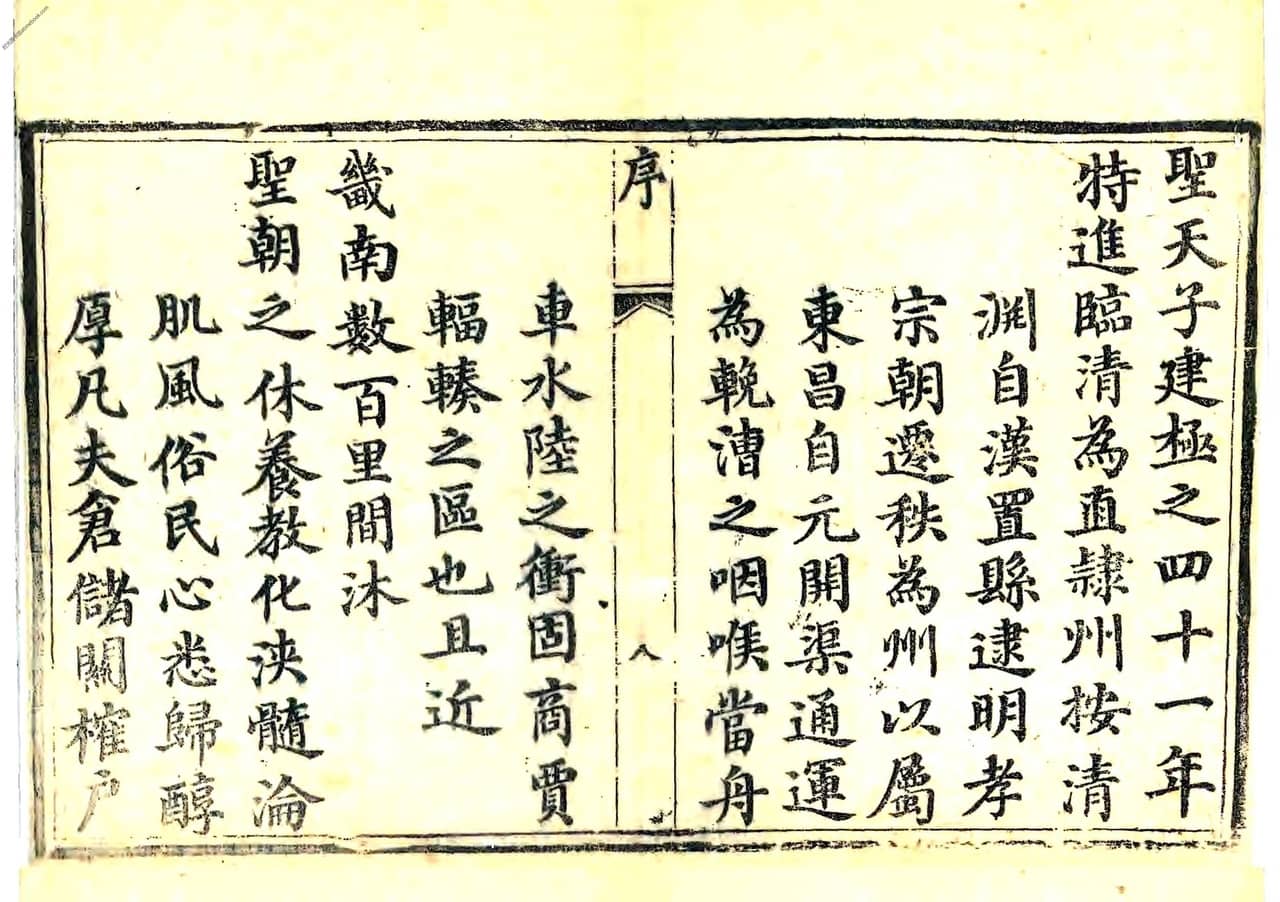 聖天子建極之四十一年
特進臨清為直隷州按清
淵自漢置縣逮明孝
宗朝遷秩為州以屬
東昌自元開渠通運
為輓漕之咽喉當舟
序
八
車水陸之衝固商賈
輻輳之區也且近
畿南數百里間沐
聖朝之休養教化浹髓淪
肌風俗民心悉歸醇
厚凡夫倉儲關榷户